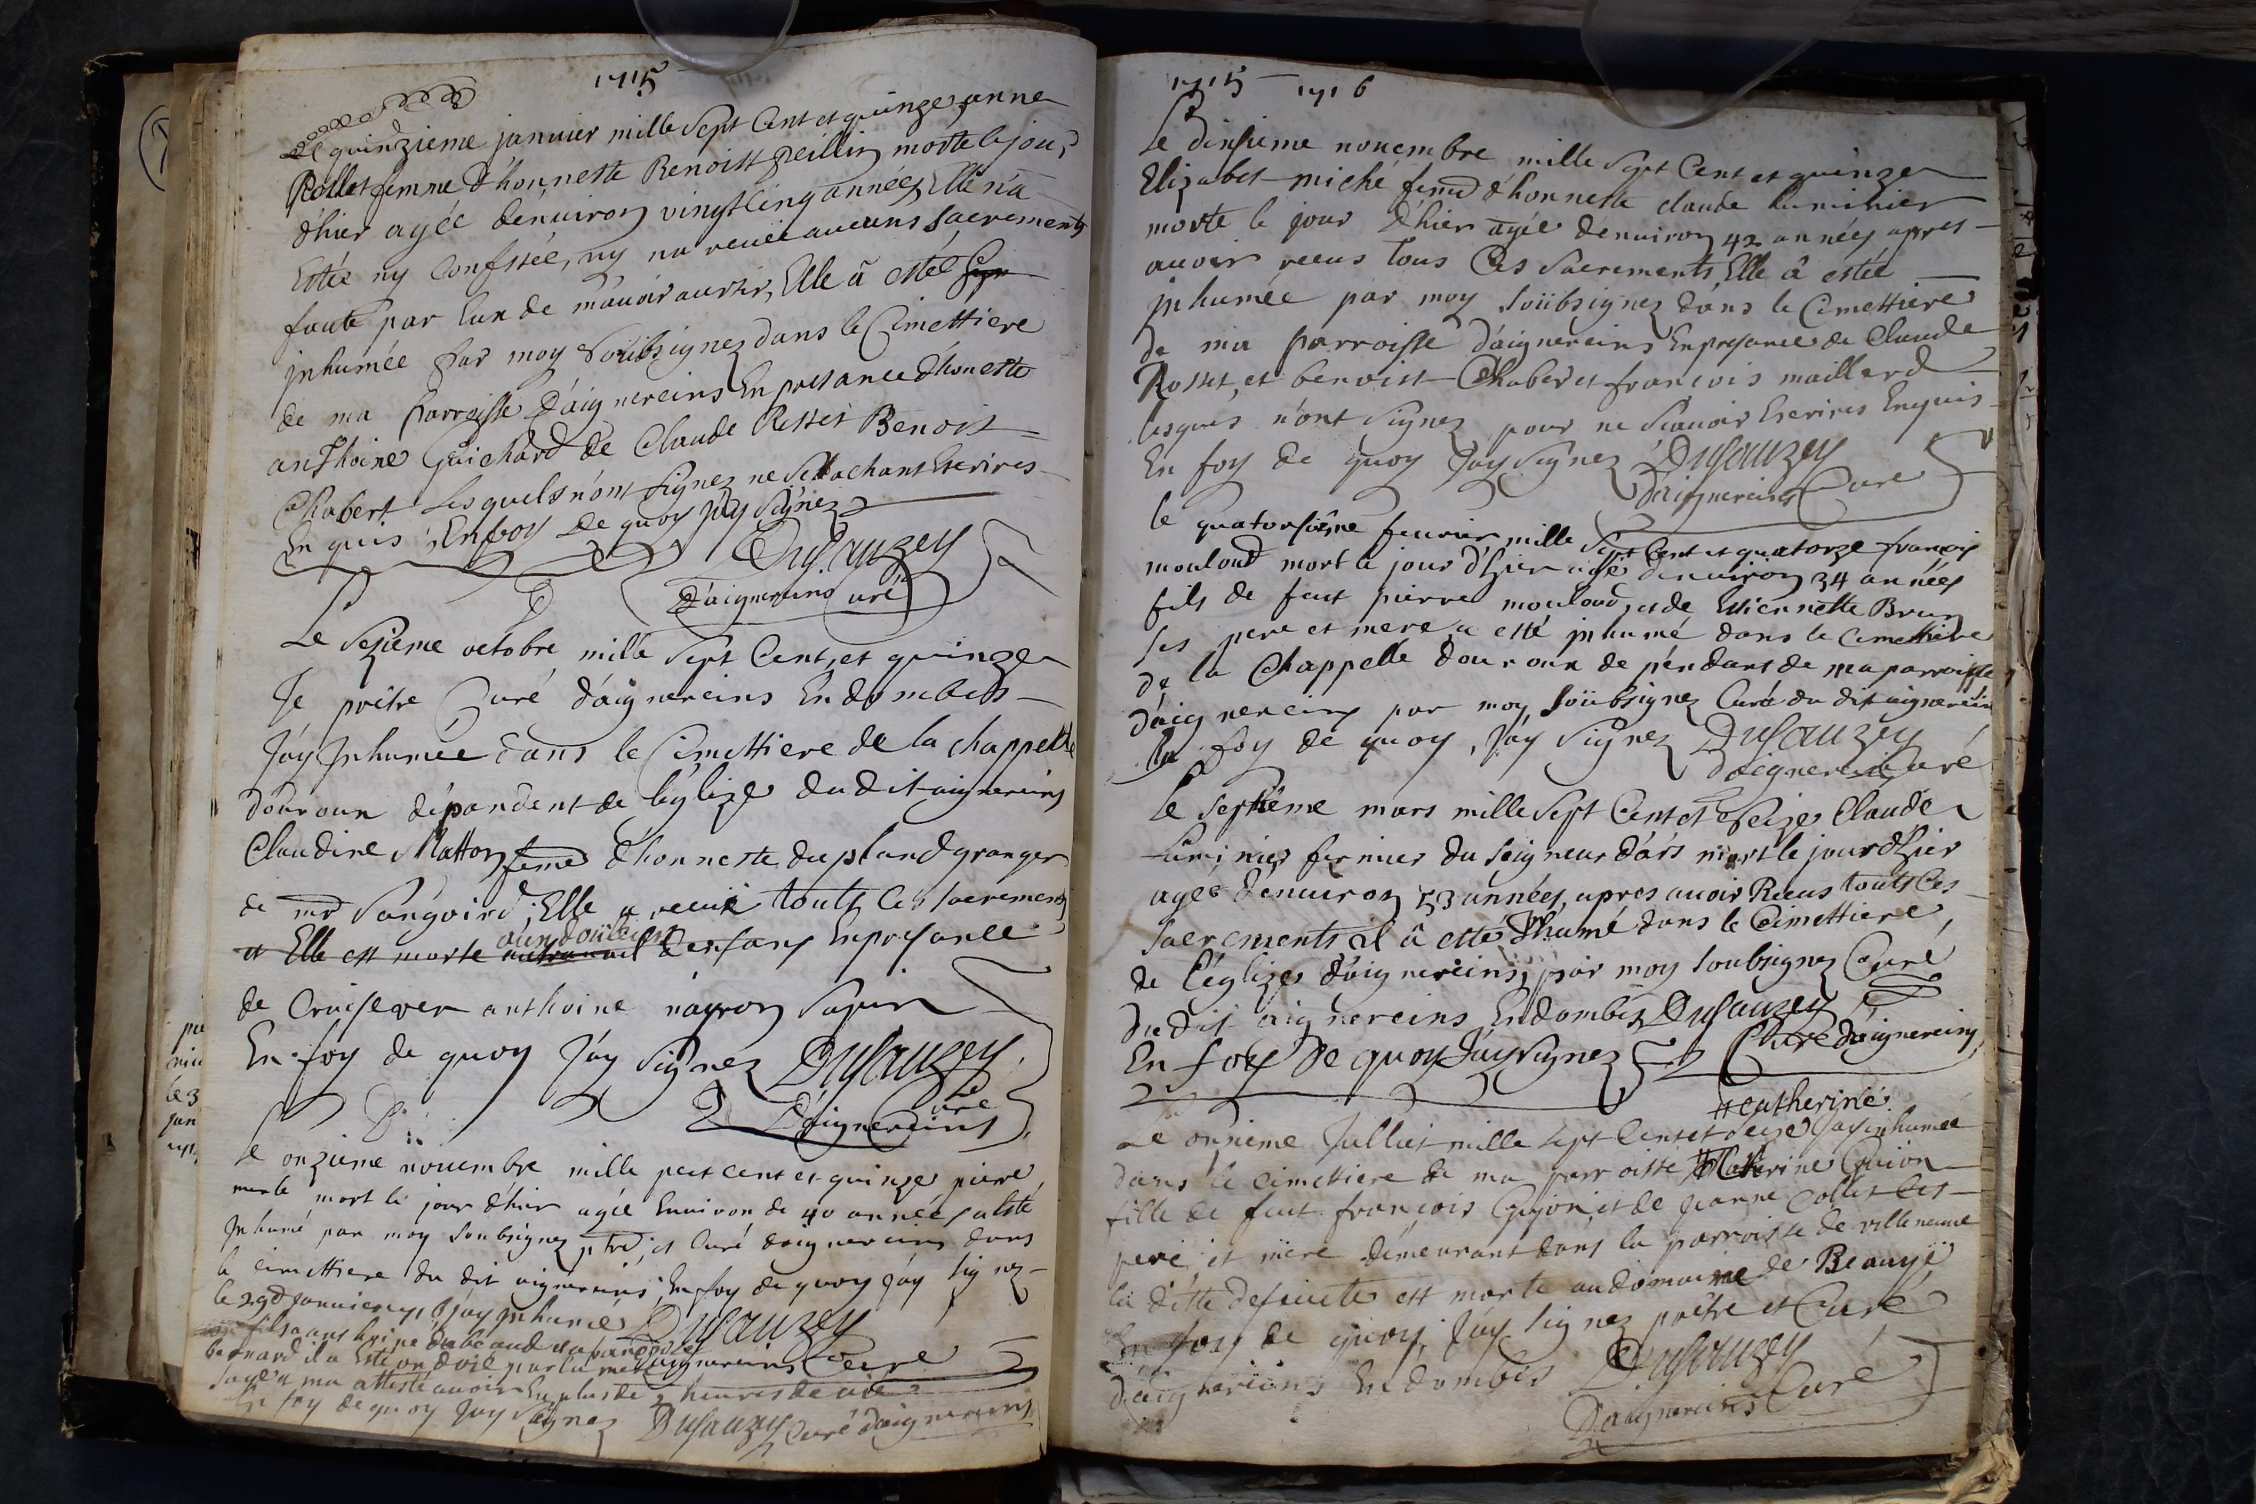 1715
Le quinzieme januier mille sept Cent et quinze anne
Rollet femme d'honneste Benoist peillin morte le jour
d'hier agée denuiron vingtcinq années Elle n'a
Estée ny Confessée, ny na receüe aucuns sacrements
faute par Eux de m'auoir auertir, Elle â estée
jnhumée par moy Soübsignez dans le Cimettiere
de ma parroisse D'aignereins En presance d'honeste
anthoine Guichard de Claude Rosset Benoist
Chabert Lesquels n'ont signez ne scachant Escrires
En quis En foy De quoy j'ay signez
Dusauzey
D'aignereins Curé
Le sezieme octobre mille sept Cent, et quinze
Je prêtre Curé d'aignereins En dombes
J'ay Jnhumée dans le Cimettiere de la chappelle
douroux dépandent de l'églize du dit aignereins
Claudine Matton feme d'honneste du pland granger
de mr Sangoird; Elle a receüe touts les sacrements
et Elle est morte d'enfans En presance
aux douleurs
de anthoine nayron
En foy de quoy J'ay signez Dusauzey
Curé
D'aignereins
Le onzieme nouembre mille cent et quinze piere
mort le jour d'hier agée Enuiron de 40 années a esté
Jnhumé par moy Soubsignez ptre, et Curé daignereins dans
le cimettiere du dit aignereins; En foy de quoy j'ay signez
le 29e Januier 1716 J'ay Jnhumé Dusauzey
fils a anthoine
bernard il a Esté ondoié par la mere d'aignereins Curé
sage a ma attesté auoir Eu plus de 2 heures de vie
En foy de quoy J'ay signez Dusauzey Curé d'aignereins
1715 1716
Le dixsieme nouembre mille sept Cent et quinze
Elizabet miché feme d'honneste claude luminier
morte le jour d'hier agée denuiron 42 années apres
auoir receus tous Ces Sacrements, Elle â estée
jnhumée par moy soübsignez dans le Cimettiere
de ma parroisse d'aignereins En presance de Claude
Rosset, et benoist Chaber et françois maillerd
lesques n'ont signez pour ne scauoir Escrires Enquis
En foy de quoy J'ay signez Dusauzey
D'aignereins Curé
le quatorsiême feurier mille sept Cent et quatorze françois
mouloud mort le jour d'hier agé denuiron 34 années
fils de feut pierre mouloud, et de Estiennette Brun
ses pere et mere a esté jnhumé dans le Cimettiere
de la Chappelle douroux de péndant de ma parroisse
d'aignereins par moy soübsignez Curé du dit aignereins
En foy de quoy, J'ay signez Dusauzey
d'aignereins Curé
Le septiême mars mille sept Cent et seize Claude
luminier fermier du seigneur d'ars mort le jour d'hier
agée denuiron 53 années, apres auoir Receus touts Ces
Sacrements il â esté Jnhumé dans le Cimettiere
de l'églize d'aignereins, par moy soubsignez Curé
du dit aignereins En dombes Dusauzey
En foy de quoy J'ay signez Curé d'aignereins
# catherine
Le onzieme Julliet mille sept Cent et seize J'ay inhumée
dans le cimettiere de ma parroisse # Catherine Guion
fille de feut françois Gujon, et de jeanne Collet ses
pere, et mere démeurant dans la parroisse de villeneuue
la ditte defunte est morte au domaine de Beauye
En foy de quoy, J'ay signez prêtre et Curé
d'aignereins En dombes Dusauzey
D'aignereins Curé